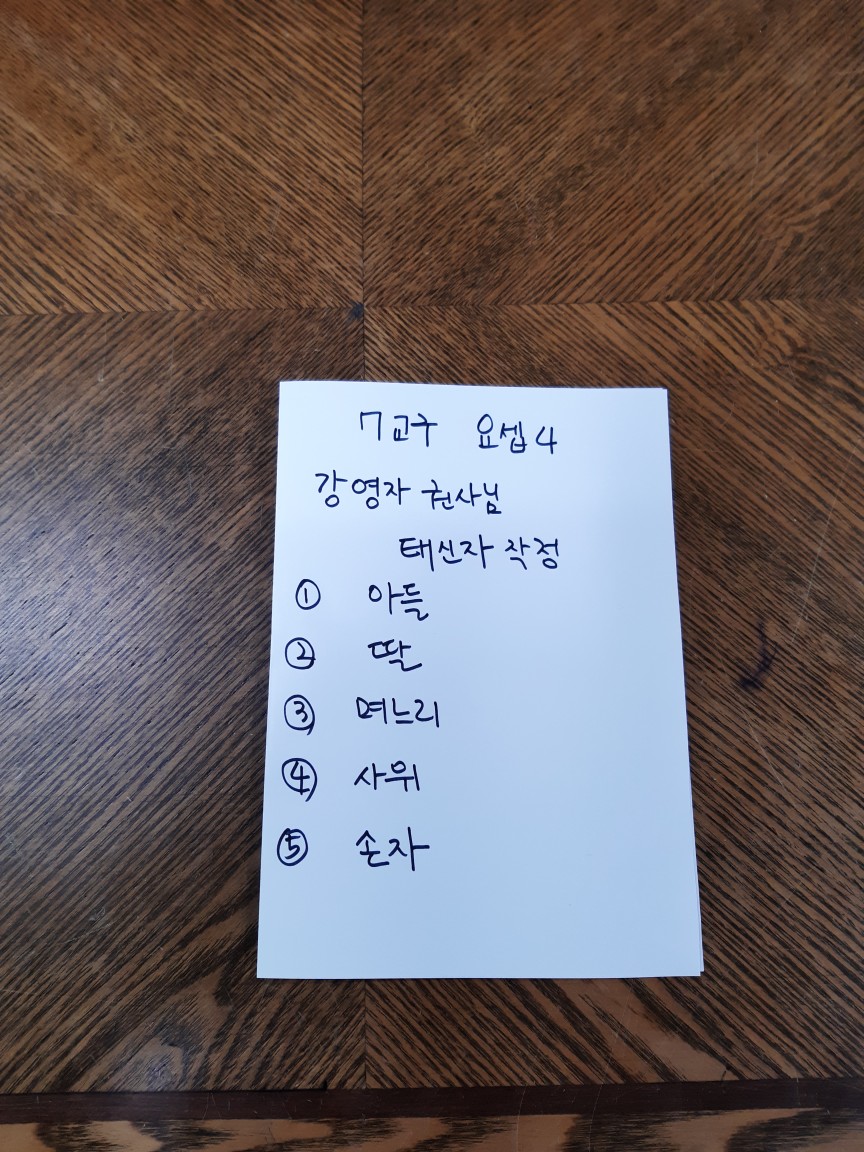 7교구 요셉4
강영자 권사님
태신자 작정
① 아들
② 딸
③ 며느리
④ 사위
⑤ 손자